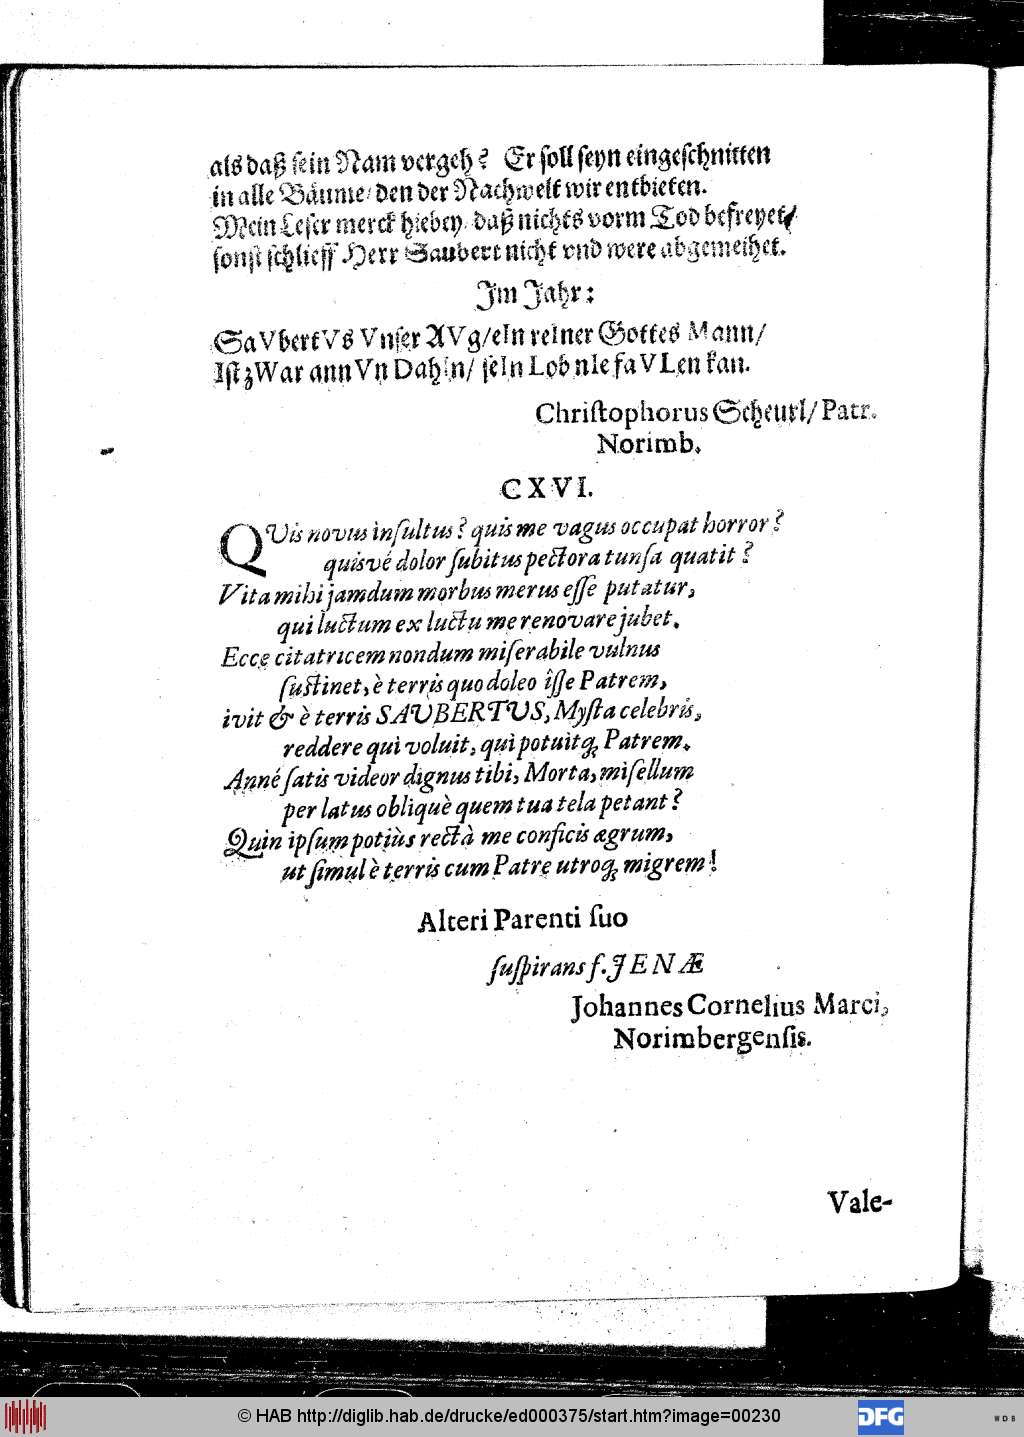 als daß sein Nam vergeh? Er soll seyn eingeschnitten
in alle Bäume/ den der Nachwelt wir entbieten.
Mein Leser merck hiebey/ daß nichts vorm Tod befreyet/
sonst schlieff Herr Saubert nicht vnd were abgemeihet.
Im Jahr:
SaVbertVs Vnser AVg/ eIn reIner Gottes Mann/
Ist zWar ann Vn DahIn/ seIn Lob nIe faVLen kan.
Christophorus Scheurl/ Patr.
Norimb.
CXVI.
QUis novus insultus? quis me vagus occupat horror?
quisvé dolor subitus pectora tunsa quatit?
Vita mihi jamdum morbus merus esse putatur,
qui luctum ex luctu me renovare jubet.
Ecce citatricem nondum miserabile vulnus
sustinet, è terris quo doleo îsse Patrem,
ivit & è terris SAUBERTUS, Mysta celebris,
reddere qui voluit, qui potuitq; Patrem.
Anné satis videor dignus tibi, Morta, misellum
per latus obliquè quem tua tela petant?
Quin ipsum potiùs rectà me conficis ægrum,
ut simul è terris cum Patre utroq; migrem!
Alteri Parenti suo
suspirans f. JENÆ
Johannes Cornelius Marci,
Norimbergensis.
Vale-
© HAB http://diglib.hab.de/drucke/ed000375/start.htm?image=00230
DFG
WDB